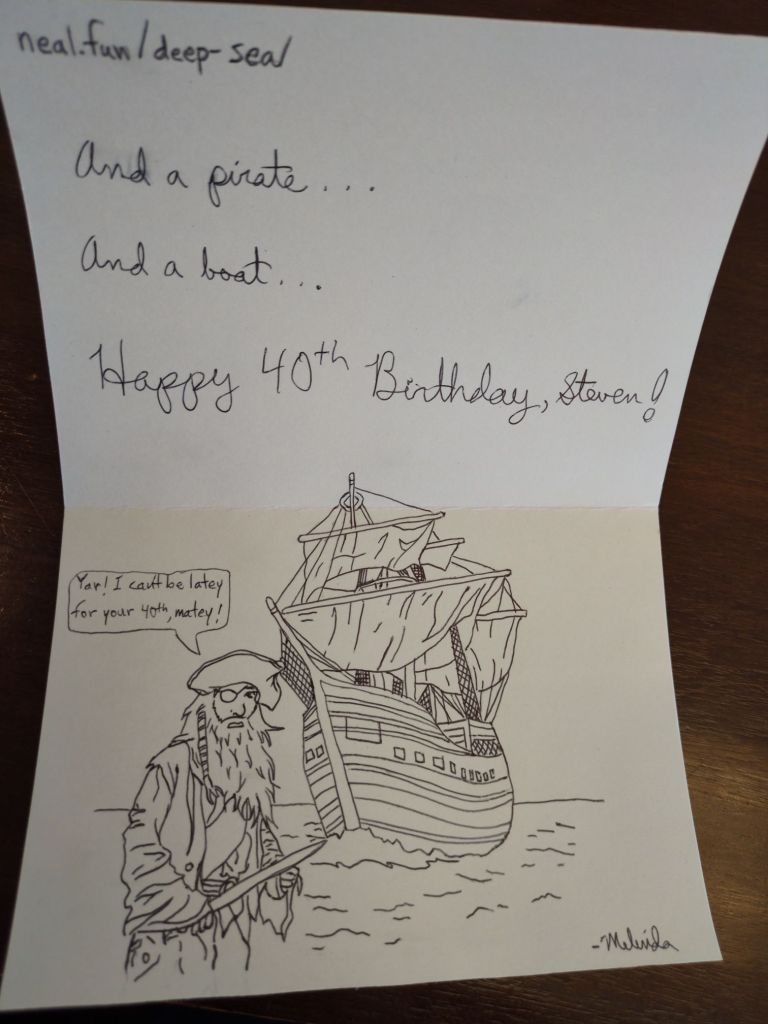 neal.fun/deep-sea/
And a pirate...
And a boat...
Happy 40th Birthday, Steven!
Yar! I can't be latey
for your 40th, matey!
-Melinda